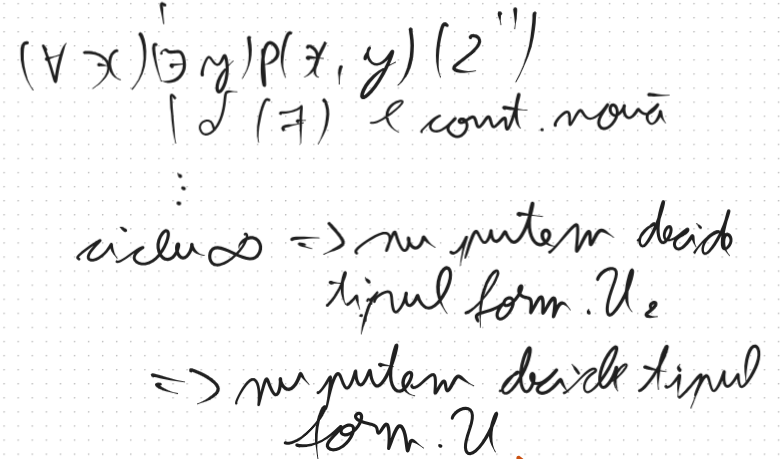 (∀x)(∃y)p(x,y) (2'')
| δ (7) e const. nouă
⋮
ciclu ∞ => nu putem decide
tipul form. U₂
=> nu putem decide tipul
form. U